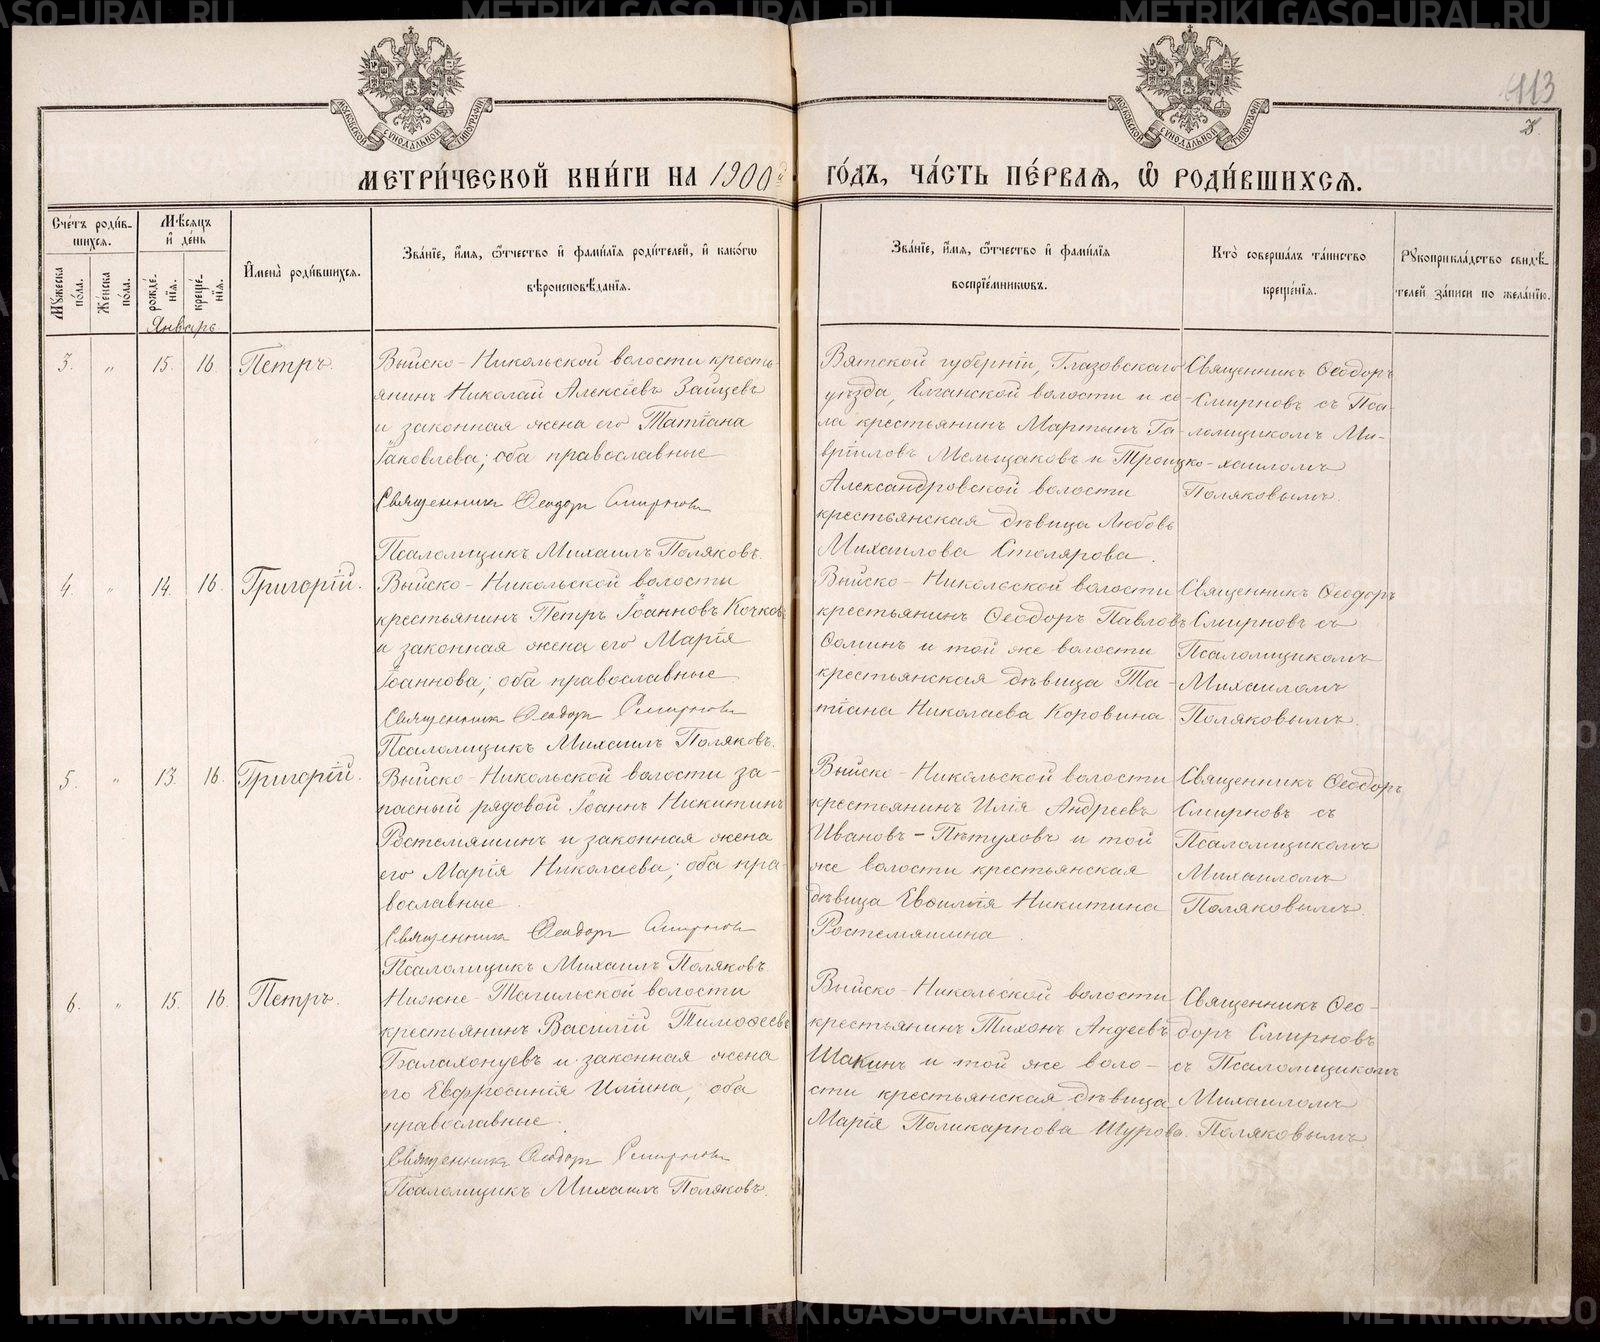 113
МОСКОВСКОЙ СУНОДАЛЬНОЙ ТИПОГРАФІИ
МОСКОВСКОЙ СУНОДАЛЬНОЙ ТИПОГРАФІИ
МЕТРИ́ЧЕСКОЙ КНИ́ГИ НА 1900й ГО́ДЪ, ЧА́СТЬ ПЕ́РВАЯ, Ѿ РОДИ́ВШИХСѦ.
Сче́тъ роди́в-
шихсѧ.
Мꙋ́жеска по́ла.
Же́нска по́ла.
Мѣ́сѧцъ и҆ де́нь
рожде́нїѧ.
креще́нїѧ.
И҆мена̀ роди́вшихсѧ.
Зва́нїе, и҆́мѧ, ѻ҆́тчество и҆ фами́лїѧ роди́телей, и҆ како́гѡ
вѣроисповѣ́данїѧ.
Зва́нїе, и҆́мѧ, ѻ҆́тчество и҆ фами́лїѧ
воспрїе́мникѡвъ.
Кто̀ соверша́лъ та́инство
креще́нїѧ.
Рꙋкоприкла́дство свидѣ́-
телей за́писи по жела́нїю.
Январь
3. „ 15. 16. Петръ.
Выйско-Никольской волости кресть-
янинъ Николай Алексіевъ Зайцевъ
и законная жена его Татіана
Іаковлева; оба православные
Священникъ Ѳеодоръ Смирновъ
Псаломщикъ Михаилъ Поляковъ.
Вятской губерніи, Глазовскаго
уѣзда, Елганской волости и се-
ла крестьянинъ Мартынъ Га-
вріиловъ Мельщаковъ и Троицко-
Александровской волости
крестьянская дѣвица Любовь
Михаилова Столярова.
Священникъ Ѳеодоръ
Смирновъ съ Пса-
ломщикомъ Ми-
хаиломъ
Поляковымъ.
4. „ 14. 16. Григорій.
Выйско-Никольской волости
крестьянинъ Петръ Іоанновъ Кочковъ
и законная жена его Марія
Іоаннова; оба православные
Священникъ Ѳеодоръ Смирновъ
Псаломщикъ Михаилъ Поляковъ.
Выйско-Никольской волости
крестьянинъ Ѳеодоръ Павловъ
Ѳоминъ и той же волости
крестьянская дѣвица Та-
тіана Николаева Коровина
Священникъ Ѳеодоръ
Смирновъ съ
Псаломщикомъ
Михаиломъ
Поляковымъ.
5. „ 13. 16. Григорій.
Выйско-Никольской волости за-
пасный рядовой Іоаннъ Никитинъ
Ростемяшинъ и законная жена
его Марія Николаева; оба пра-
вославные.
Священникъ Ѳеодоръ Смирновъ
Псаломщикъ Михаилъ Поляковъ.
Выйско-Никольской волости
крестьянинъ Илія Андреевъ
Ивановъ-Пѣтуховъ и той
же волости крестьянская
дѣвица Никитина
Ростемяшина.
Священникъ Ѳеодоръ
Смирновъ съ
Псаломщикомъ
Михаиломъ
Поляковымъ.
6. „ 15. 16. Петръ.
Нижне-Тагильской волости
крестьянинъ Василій Тимоѳеевъ
Балахонцевъ и законная жена
его Евфросинія Иліина, оба
православные.
Священникъ Ѳеодоръ Смирновъ
Псаломщикъ Михаилъ Поляковъ.
Выйско-Никольской волости
крестьянинъ Тихонъ Андеевъ
Шакинъ и той же воло-
сти крестьянская дѣвица
Марія Поликарпова Шурова.
Священникъ Ѳео-
доръ Смирновъ
съ Псаломщикомъ
Михаиломъ
Поляковымъ
METRIKI.GASO-URAL.RU